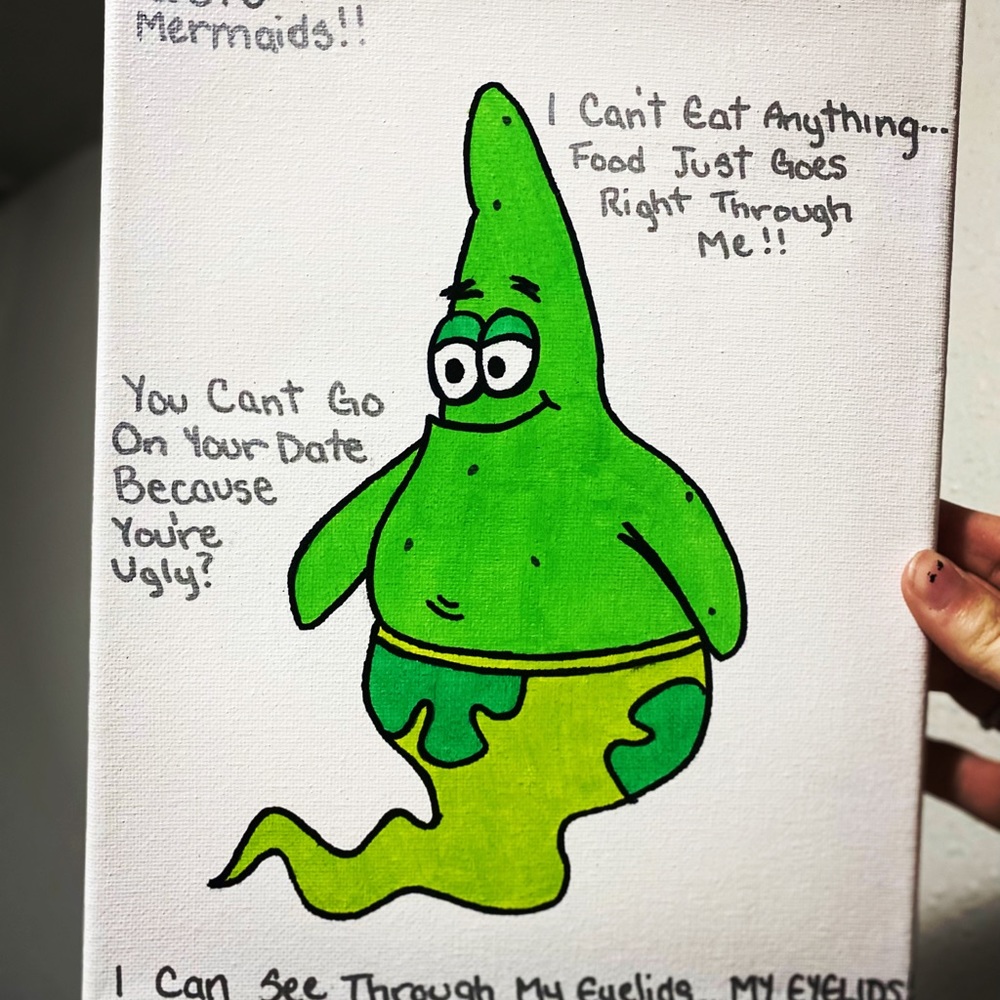 Mermaids!!
I Can't Eat Anything...
Food Just Goes
Right Through
Me!!
You Cant Go
On Your Date
Because
You're
Ugly?
I Can See Through My Eyelids MY EYELIDS